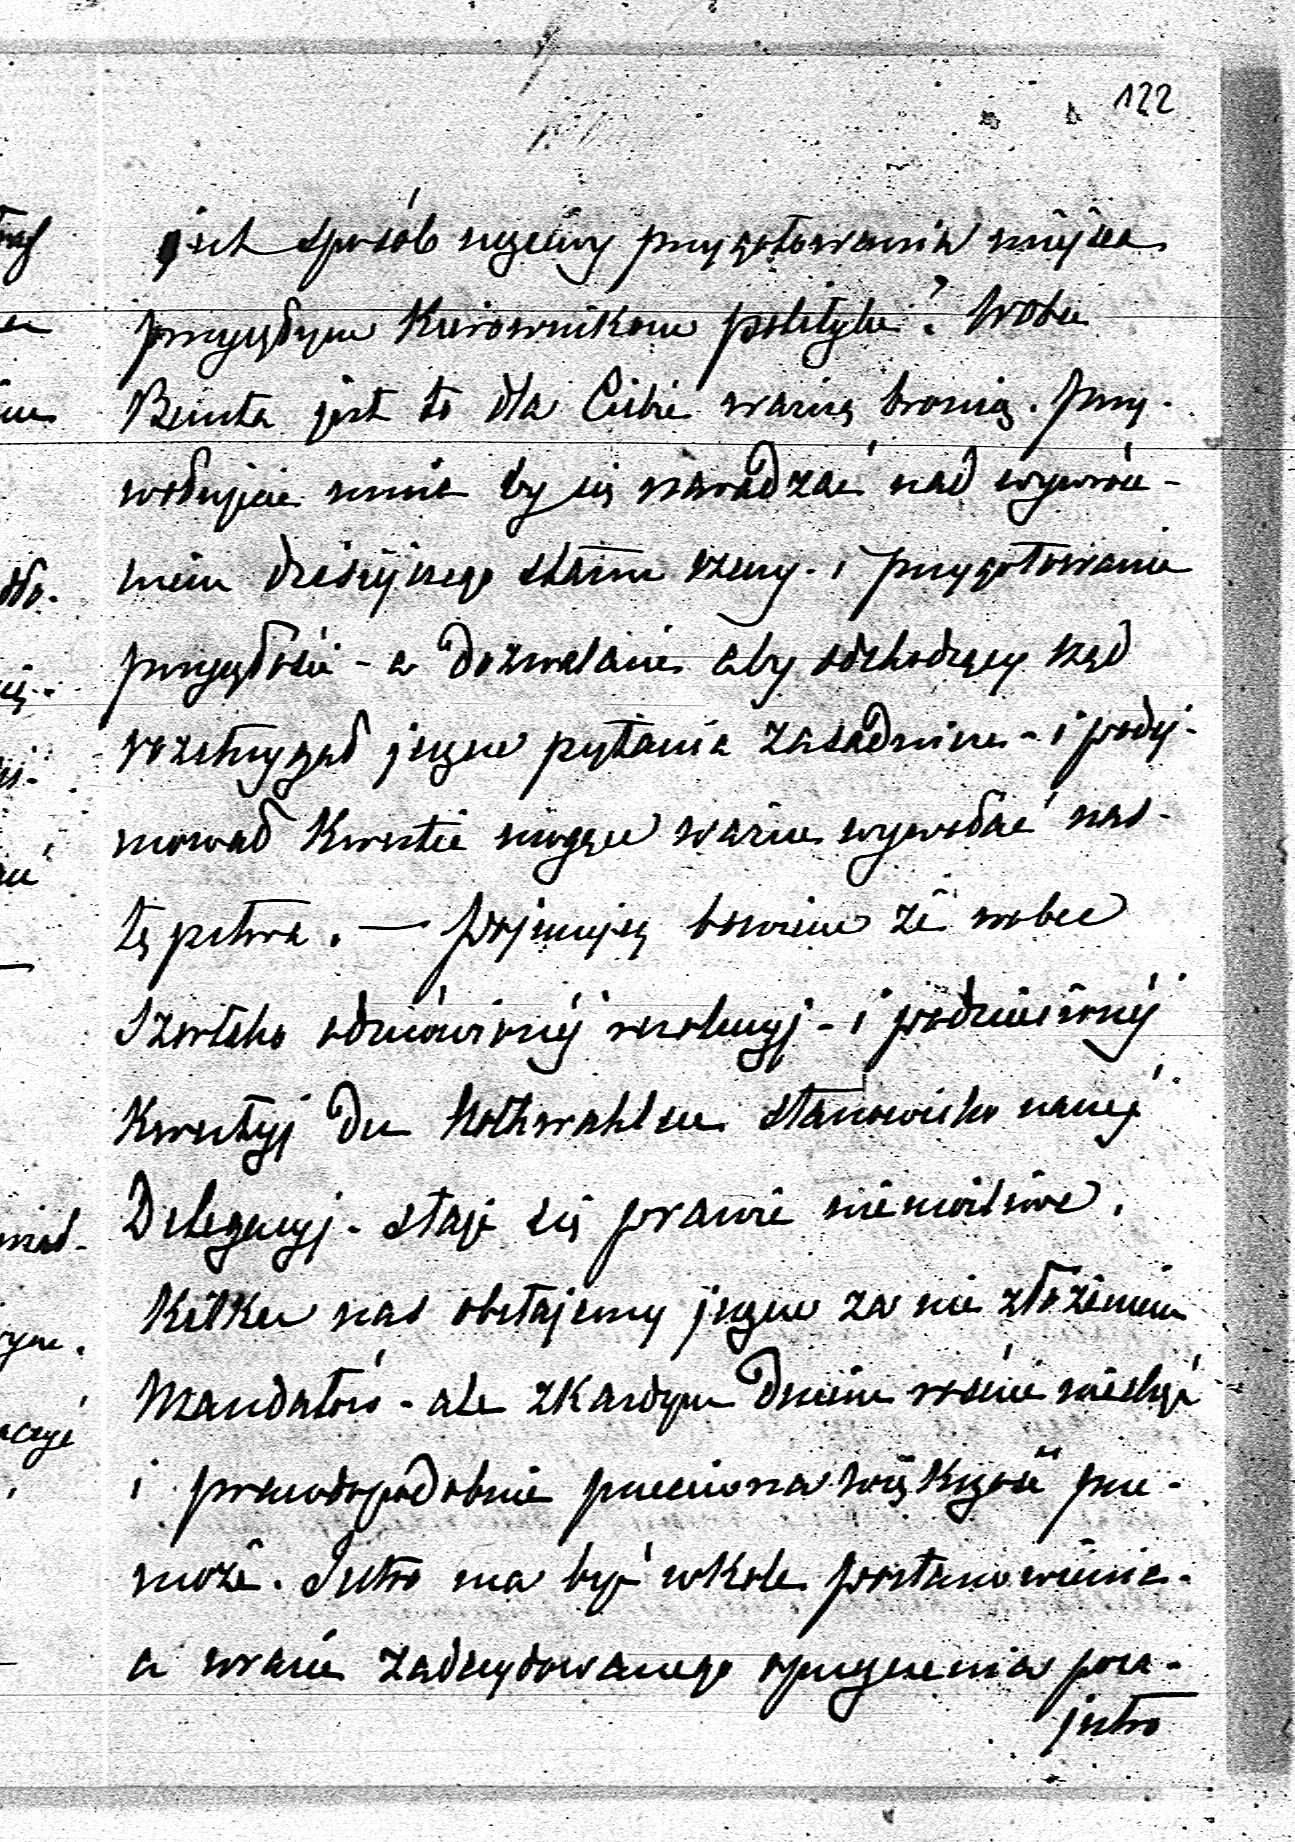 122
jest sposób uczciwy przygotowania miejsca
przyszłym Kierownikom polityki? Wobec
Beusta jest to dla Ciebie ważną bronią. Przy-
wołujcie mnie by się naradzać nad wywróce-
niem dzisiejszego stanu rzeczy - i przygotowanie
przyszłości - a dozwalacie aby odchodzący rząd
rozstrzygał jeszcze pytania zasadnicze - i podej-
mował Kwestie mogące ważne wywołać nas-
tępstwa. — Pojmujesz bowiem że wobec
Szorstko odmówionéj rezolucyj - i podniesionéj
Kwestyj der Nothwahlen stanowisko naszéj
Delegacyj - staje się prawie niemożliwe.
Kilku nas obstajemy jeszcze za nie złożeniem
Mandatów - ale z Każdym dniem rośnie niechęć
i prawdopodobnie przeciwna większość prze-
może. Jutro ma być w Kole postanowienie -
a w razie zadecydowanego opuszczenia poza-
jutro